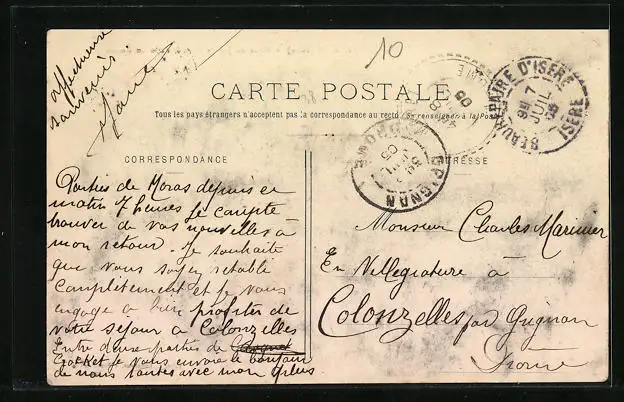 affectueux
souvenirs
10
CARTE POSTALE
Tous les pays étrangers n'acceptent pas la correspondance au recto (Se renseigner à la Poste
BEAUREPAIRE D'ISÈRE
7
JUIL
05
ISÈRE
GRIGNAN
DROME
05
CORRESPONDANCE
ADRESSE
Parties de Moras depuis ce
matin 7 heures je compte
trouver de vos nouvelles à
mon retour. Je souhaite
que vous soyez rétablie
complètement et je vous
engage à bien profiter de
votre séjour à Colonzelles
Entre deux parties de
Crocket je vous envoie le bonjour
de nous toutes avec mon plus
Monsieur Charles Marinier
En Villégiature à
Colonzelles par Grignan
Drome